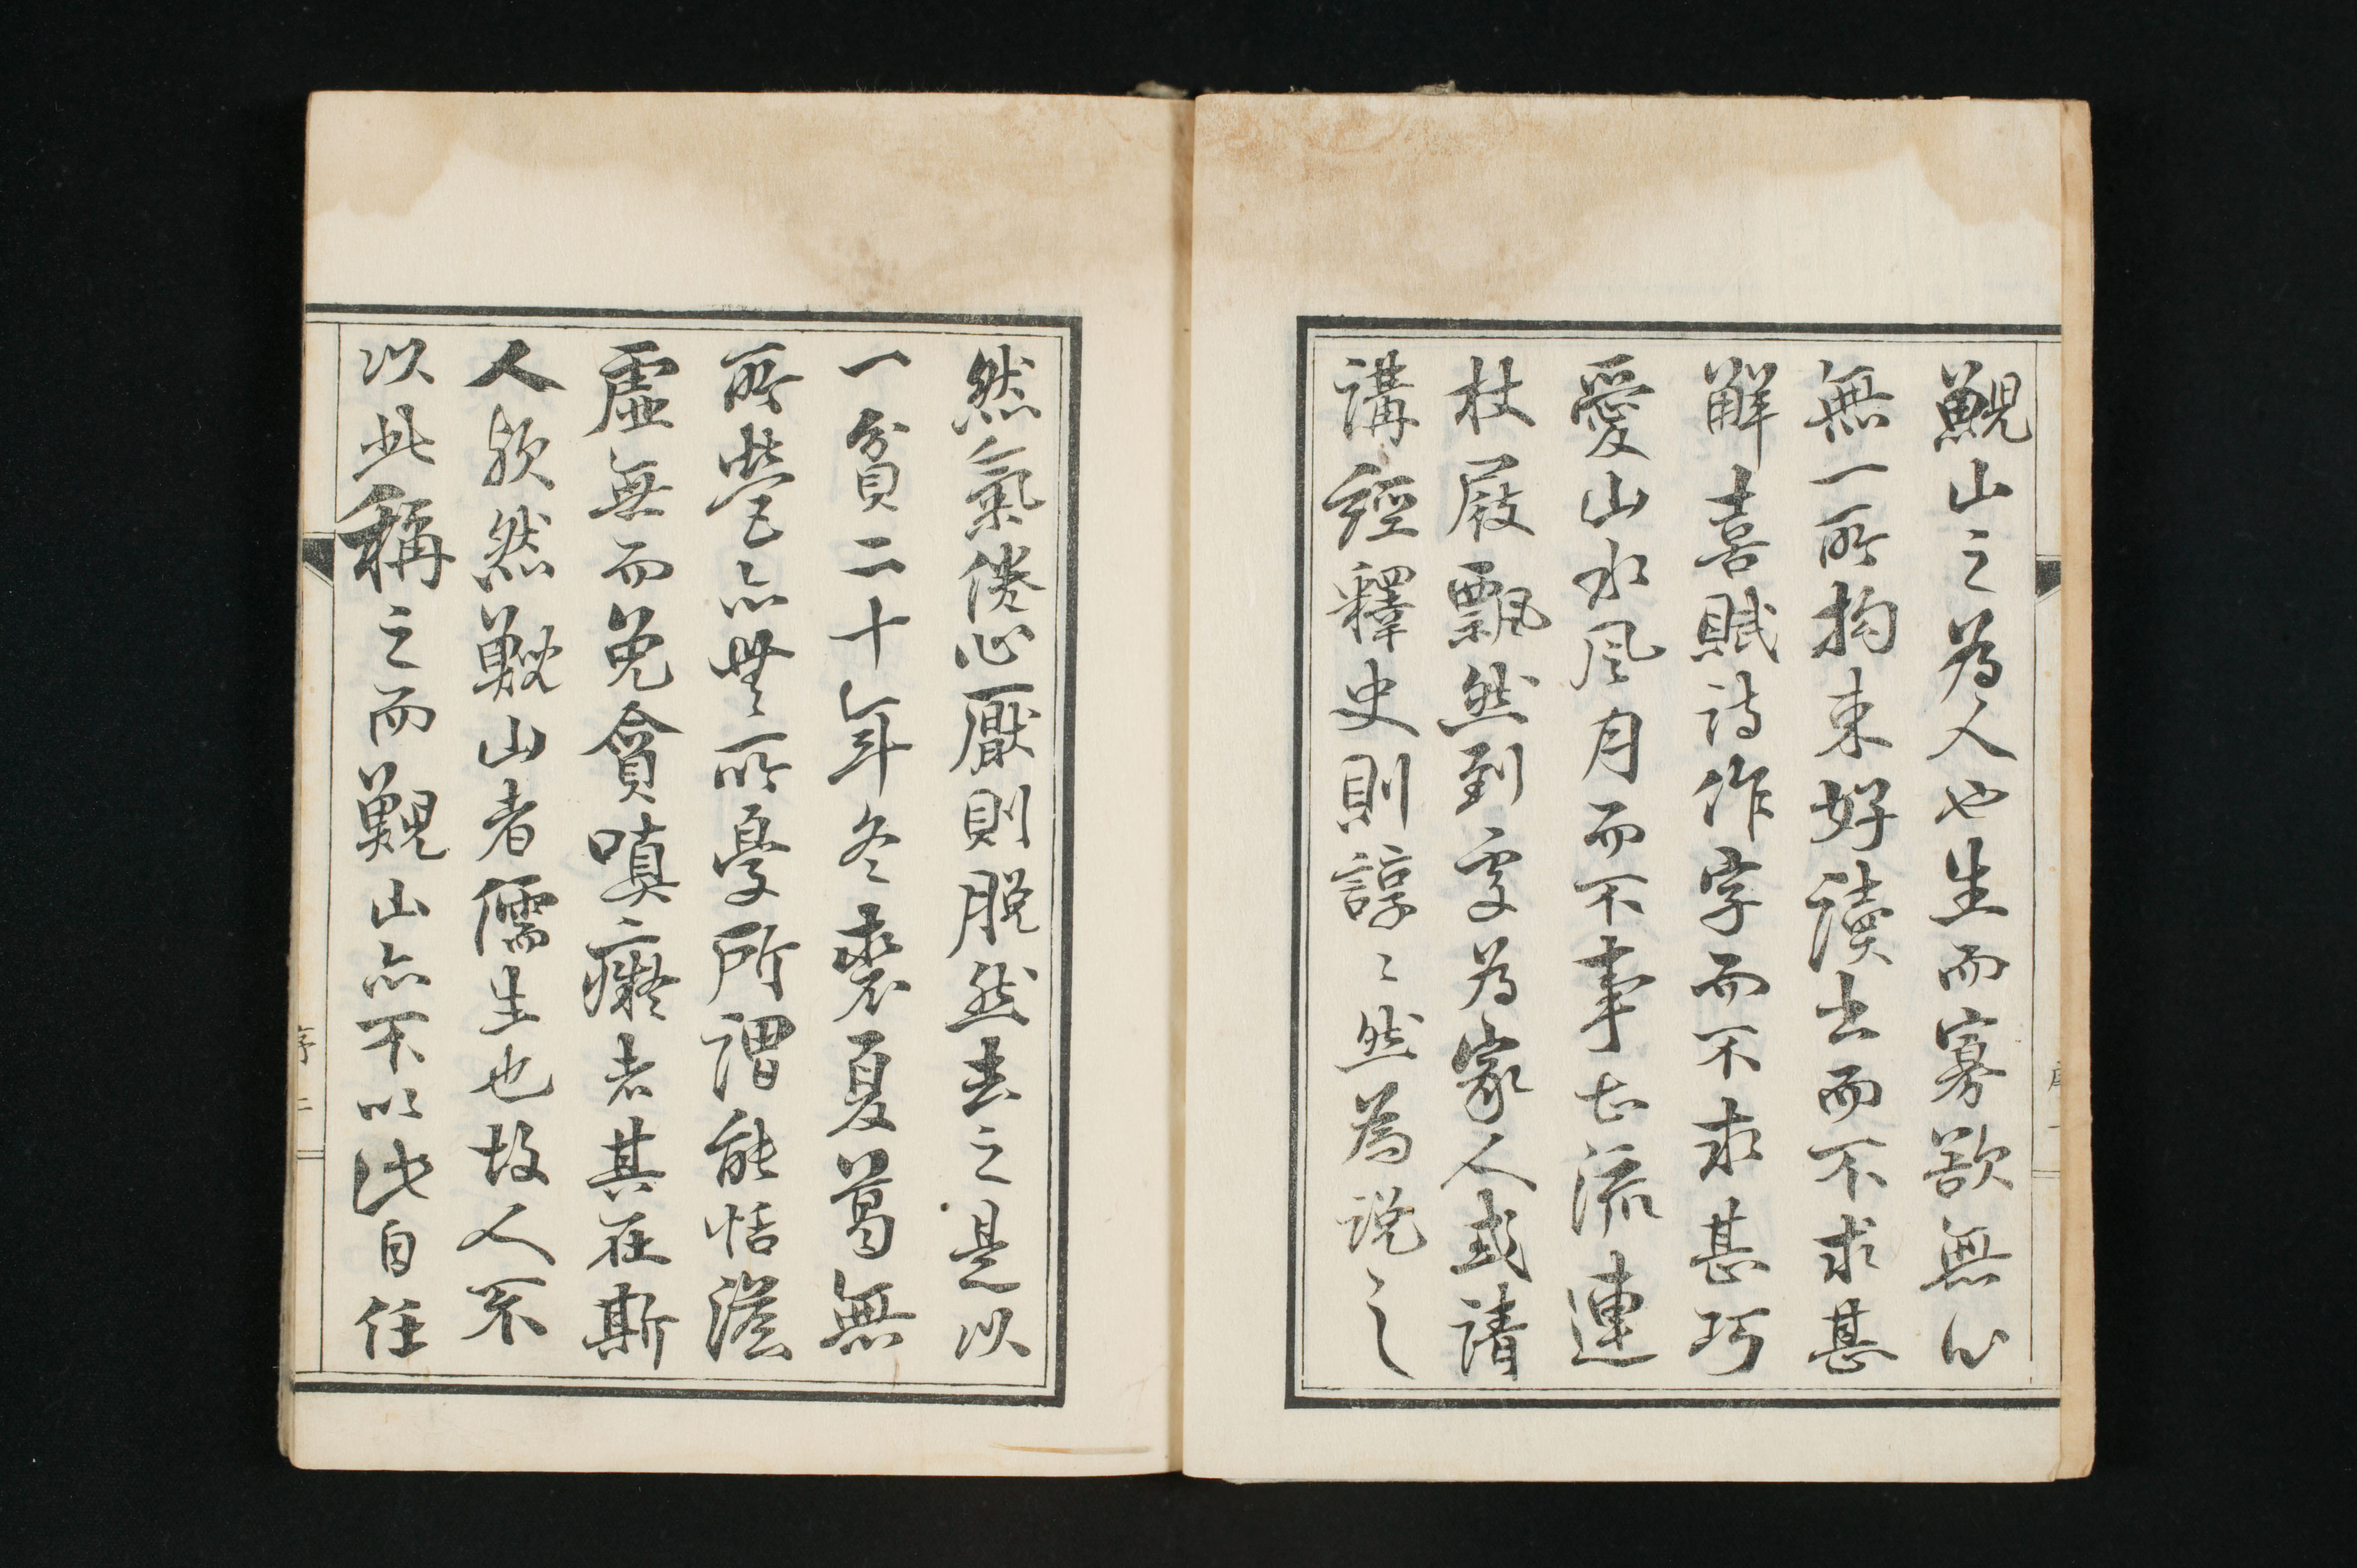 觀山之為人也生而寡欲無心
無一所拘束好讀書而不求甚
解喜賦詩作字而不求甚巧
愛山水風月而不事亡流連
杖屐飄然到處為家人或請
講經釋史則諄〻然為說之
然氣倦心厭則脫然去之是以
一貧二十年冬裘夏葛無
所營亦無所憂所謂能恬澹
虛無而免貪嗔癡者其在斯
人欤然觀山者儒生也故人不
以此稱之而觀山亦不以此自任
序 二